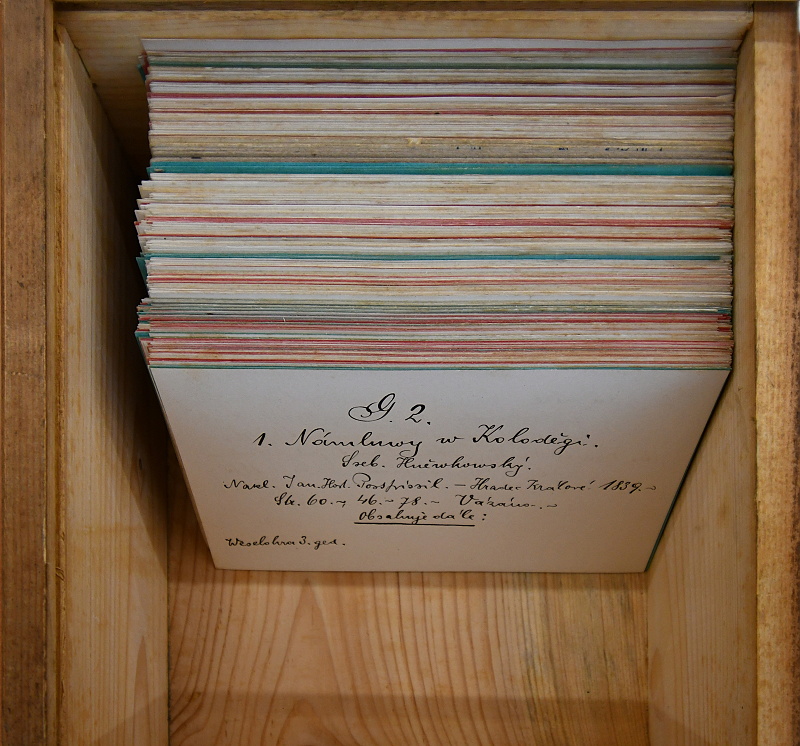 G. 2.
1. Námluwy w Koloděgi.
Šeb. Hněwkowský.
Nakl. Jan. Host. Pospíssil. – Hradec Králové 1839.~
Str. 60.~, 46.~ 78.~ Vázáno.~
Obsahuje dále:
Weselohra 3. ged.